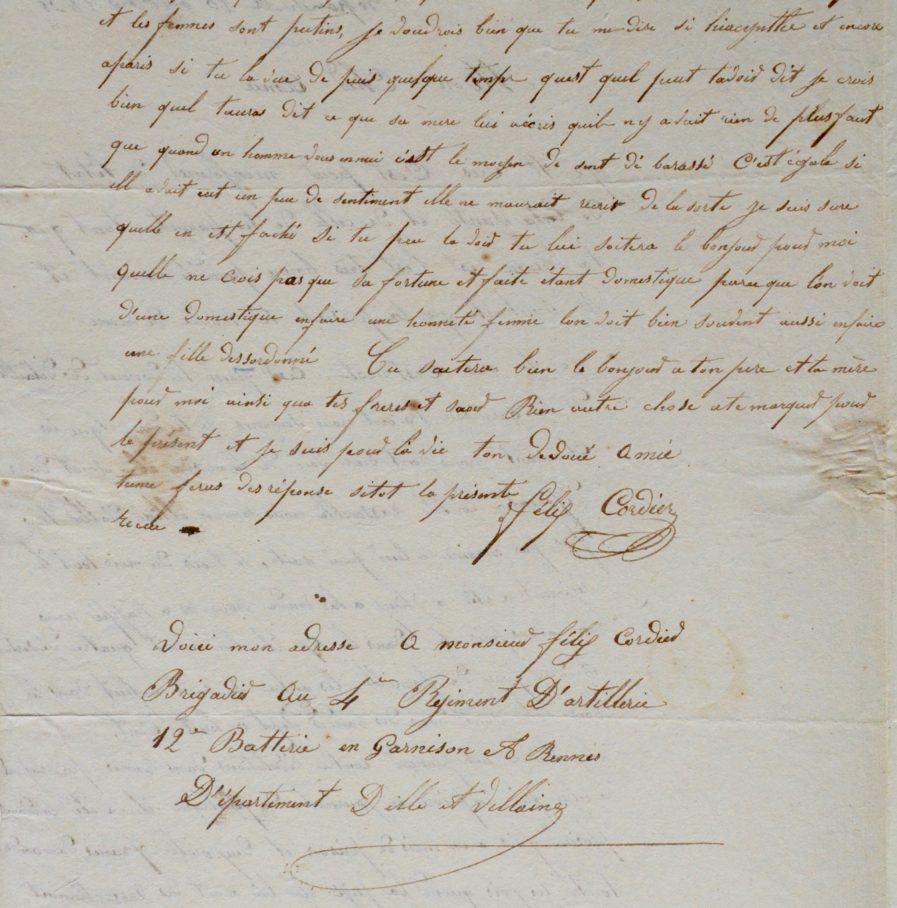 et les femmes sont putins, je voudrois bien que tu me dire si hiacynthe et encore
aparis si tu la vue de puis quelque temps quest quel peut tavoir dit je crois
bien quel taura dit ce que sa mère lui aécris quil ny avait rien de plus faut
que quand un homme vous ennui cest le moyen de sent dé barassé C'est égale si
ell avait eut un peu de sentiment elle ne maurait écris de la sorte je suis sure
quelle en est faché si tu peu la voir tu lui soitera le bonjour pour moi
quelle ne crois pas que sa fortune et faite étant domestique parce que lon voit
d'une domestique enfaire une honneté femme lon voit bien souvent aussi enfaire
une fille dessordonné Tu soitera bien le bonjour a ton pere et ta mère
pour moi ainsi qua tes freres et saeur Rien autre chose ate marquer pour
le présent et je suis pour la vie ton devoué Amie
tume feras des réponse sitot la présente
recue félix Cordier
Voici mon adresse A monsieur félix Cordier
Brigadier Au 4em Régiment D'artillerie
12em Batterie en Garnison A Rennes
Département D ille et villaine